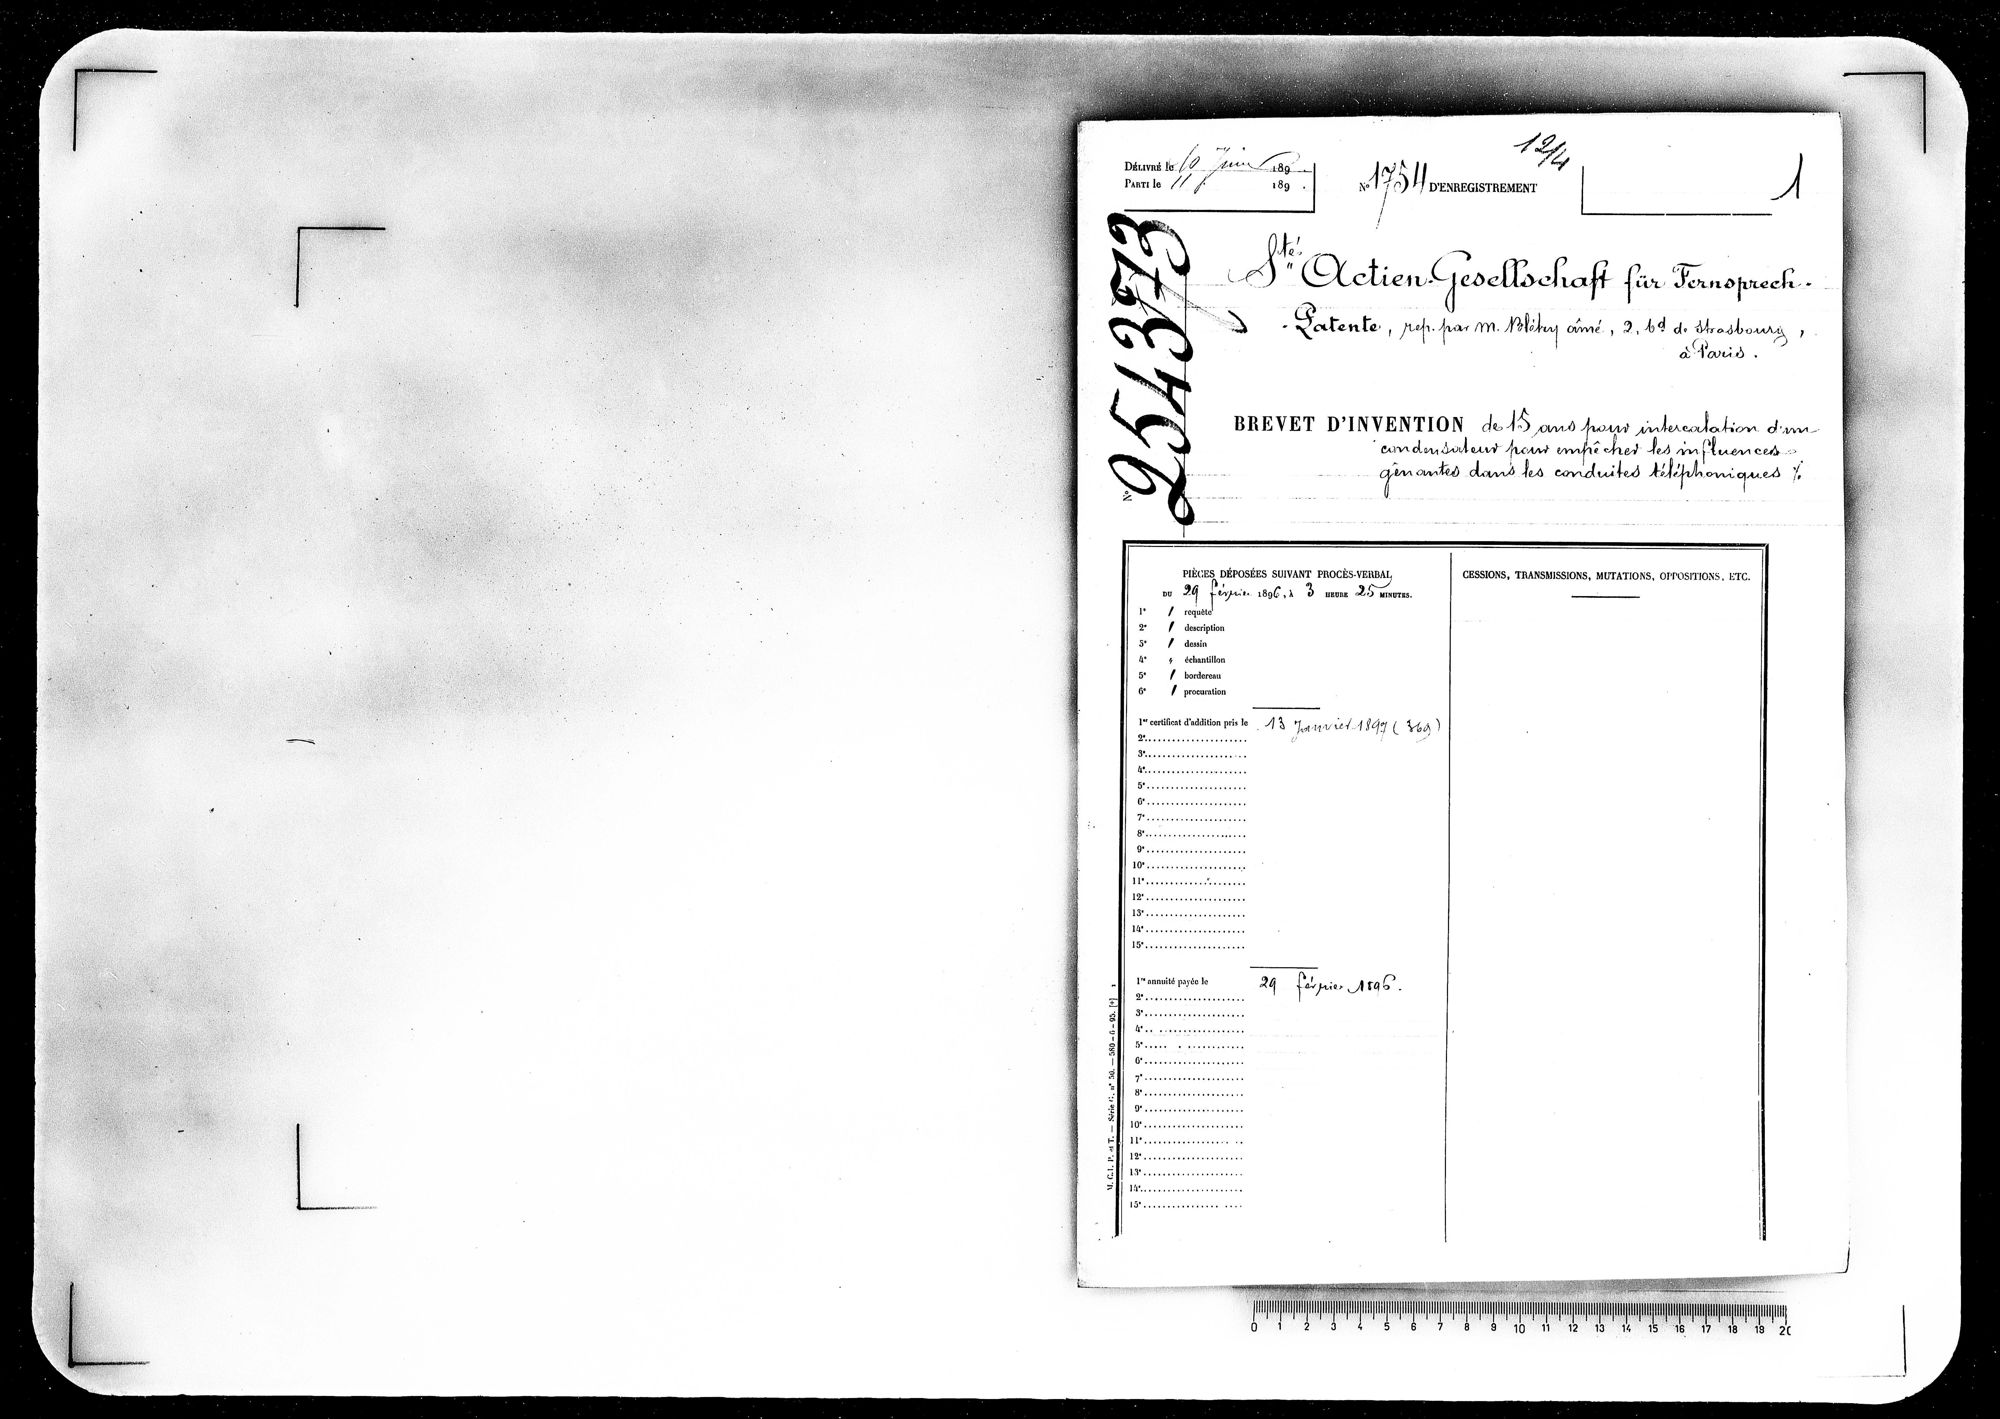 DÉLIVRÉ le 10 Juin 1896.
PARTI le 11 189 .
N° 1754 D'ENREGISTREMENT
12/4
1
N° 254373
Sté Actien-Gesellschaft für Fernsprech-
-Patente, rep. par M. Blétry aîné, 2, bd de Strasbourg,
à Paris.
BREVET D'INVENTION de 15 ans pour intercalation d'un
condensateur pour empêcher les influences
gênantes dans les conduites téléphoniques ./.
PIÈCES DÉPOSÉES SUIVANT PROCÈS-VERBAL
DU 29 février 1896, à 3 HEURE 25 MINUTES.
1° / requête
2° / description
3° / dessin
4° " échantillon
5° / bordereau
6° / procuration
1er certificat d'addition pris le 13 Janvier 1897 (369)
2e
3e
4e
5e
6e
7e
8e
9e
10e
11e
12e
13e
14e
15e
1re annuité payée le 29 février 1896.
2e
3e
4e
5e
6e
7e
8e
9e
10e
11e
12e
13e
14e
15e
CESSIONS, TRANSMISSIONS, MUTATIONS, OPPOSITIONS, ETC.
M. C. I. P. et T. — Série G, n° 50. — 580-6-95. [*]
0 1 2 3 4 5 6 7 8 9 10 11 12 13 14 15 16 17 18 19 20